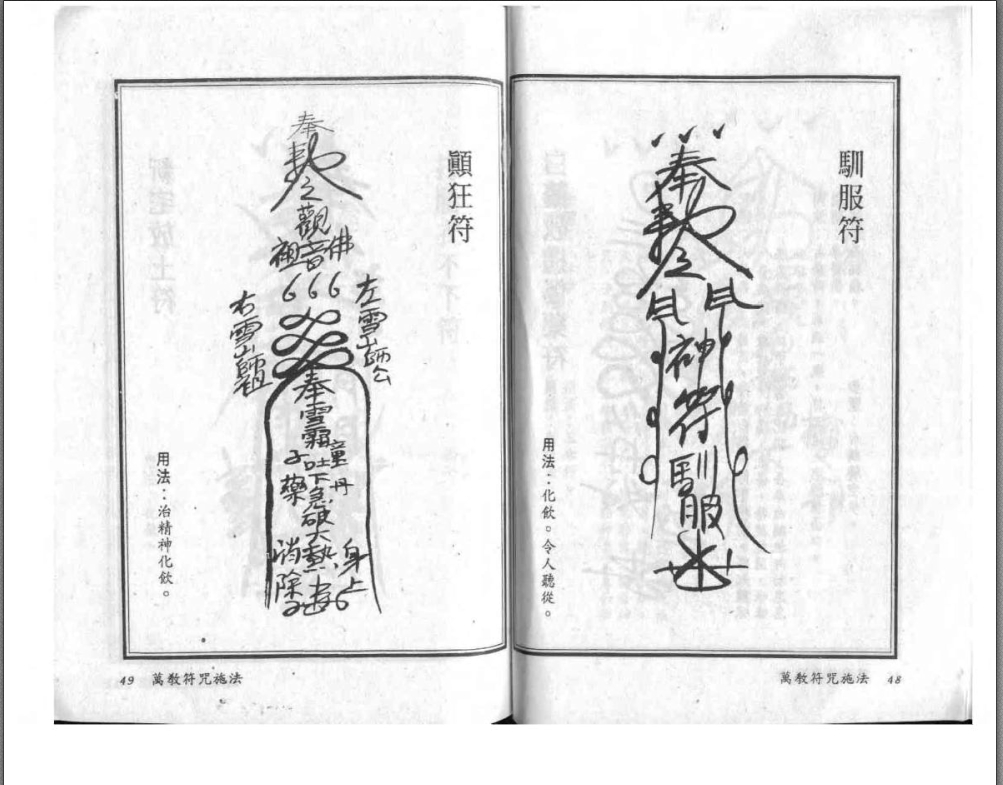 馴服符
奉
敕
令
神符馴服
用法：化飲。令人聽從。
萬教符咒施法 48
顚狂符
奉
敕
令
觀音
佛
祖
6 6 6
左雪山師公
右雪山師祖
奉雪霜
童子
吐丹
下藥
急破大熱
身上
消除
用法：治精神化飲。
49 萬教符咒施法